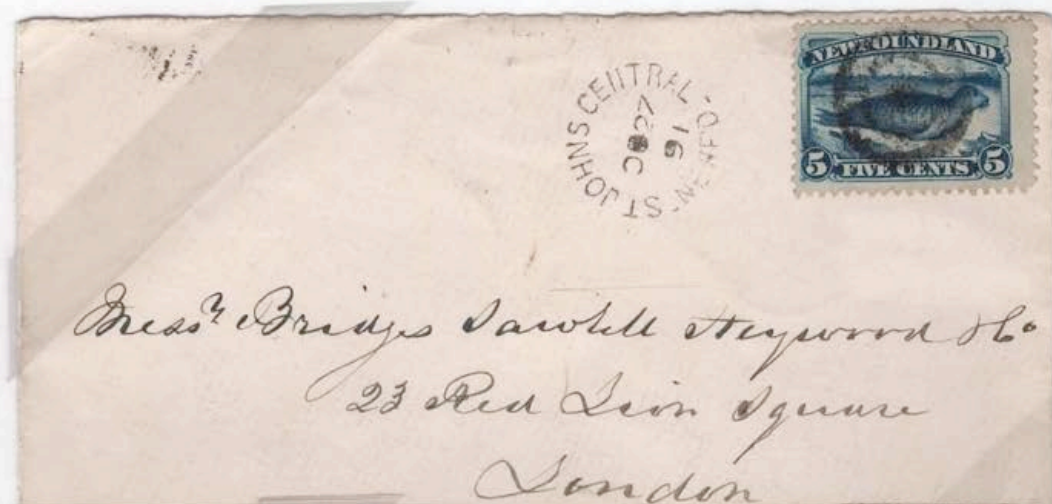 NEWFOUNDLAND
5 FIVE CENTS 5
ST JOHNS CENTRAL NEWFD.
27
16
Messrs Bridges Sawtell Heywood & Co
23 Red Lion Square
London